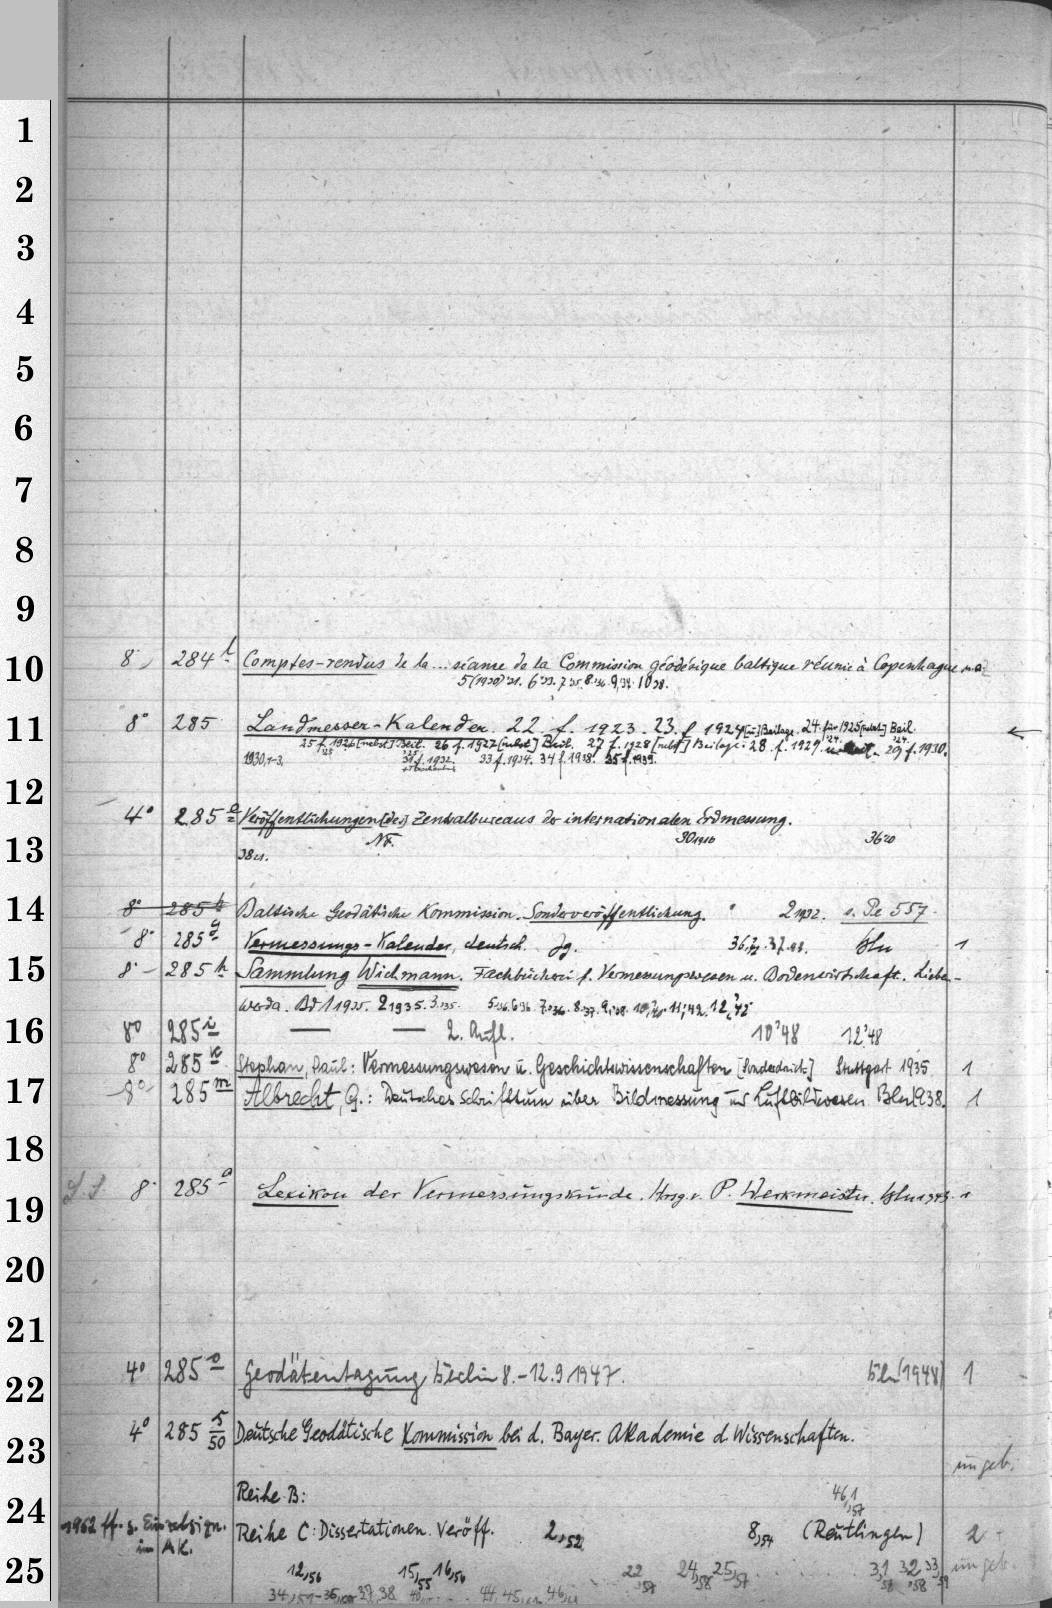 1
2
3
4
5
6
7
8
9
10
8° 284 Comptes-rendus de la ... séance de la Commission géodésique baltique réunie à Copenhague
5(1930)'31. 6'33. 7'35. 8'36. 9'38. 10'38.
11
8° 285 Landmesser-Kalender. 22. f. 1923. 23. f 1924 [u.] Beilage. 24. für 1925 [nebst] Beil.
25 f. 1926 [nebst] Beil. 26 f. 1927 [nebst] Beil. 27 f. 1928 [nebst] Beilage. 28. f. 1929. 29 f. 1930.
1930,1-3. 31 f. 1932. 33 f. 1934. 34 f. 1938. 35 f. 1939.
12
4° 285 a Veröffentlichungen [des] Zentralbureaus der internationalen Erdmessung.
13
NF. 30 1916 36 20
38 21.
14
8° 285 Baltische Geodätische Kommission. Sonderveröffentlichung. 2 1932. s. Pe 557.
8° 285 g Vermessungs-Kalender, deutsch. Jg. 36. 37. Bln 1
15
8° 285 h Sammlung Wichmann. Fachbücherei f. Vermessungswesen u. Bodenwirtschaft. Lieben-
werda. Bd 1 1935. 2 1935. 3 '35. 5'36. 6'36. 7'36. 8'37. 9'38. 10'40. 11'42. 12'42
16
8° 285 i — — 2. Aufl. 10'48 12'48
8° 285 k Stephan, Paul: Vermessungswesen u. Geschichtswissenschaften [Sonderdruck] Stuttgart 1935 1
17
8° 285 m Albrecht, G.: Deutsches Schrifttum über Bildmessung und Luftbildwesen Bln 1938. 1
18
8° 285 Lexikon der Vermessungskunde. Hrsg. v. P. Werkmeister. Bln 1943. 1
19
20
21
4° 285 o Geodätentagung Berlin 8.-12.9.1947. Bln (1948) 1
22
4° 285 5/50 Deutsche Geodätische Kommission bei d. Bayer. Akademie d. Wissenschaften.
23
ungeb.
Reihe B: 46,1,57
24
1962 ff. s. Einzelsign. im AK.
Reihe C: Dissertationen. Veröff. 2,52 8,54 (Reutlingen) 2
25
12,56 15,55 16,56 22,57 24,58 25,57 31,58 32,58 33,59 ungeb.
34 35 37, 38 44, 45 46